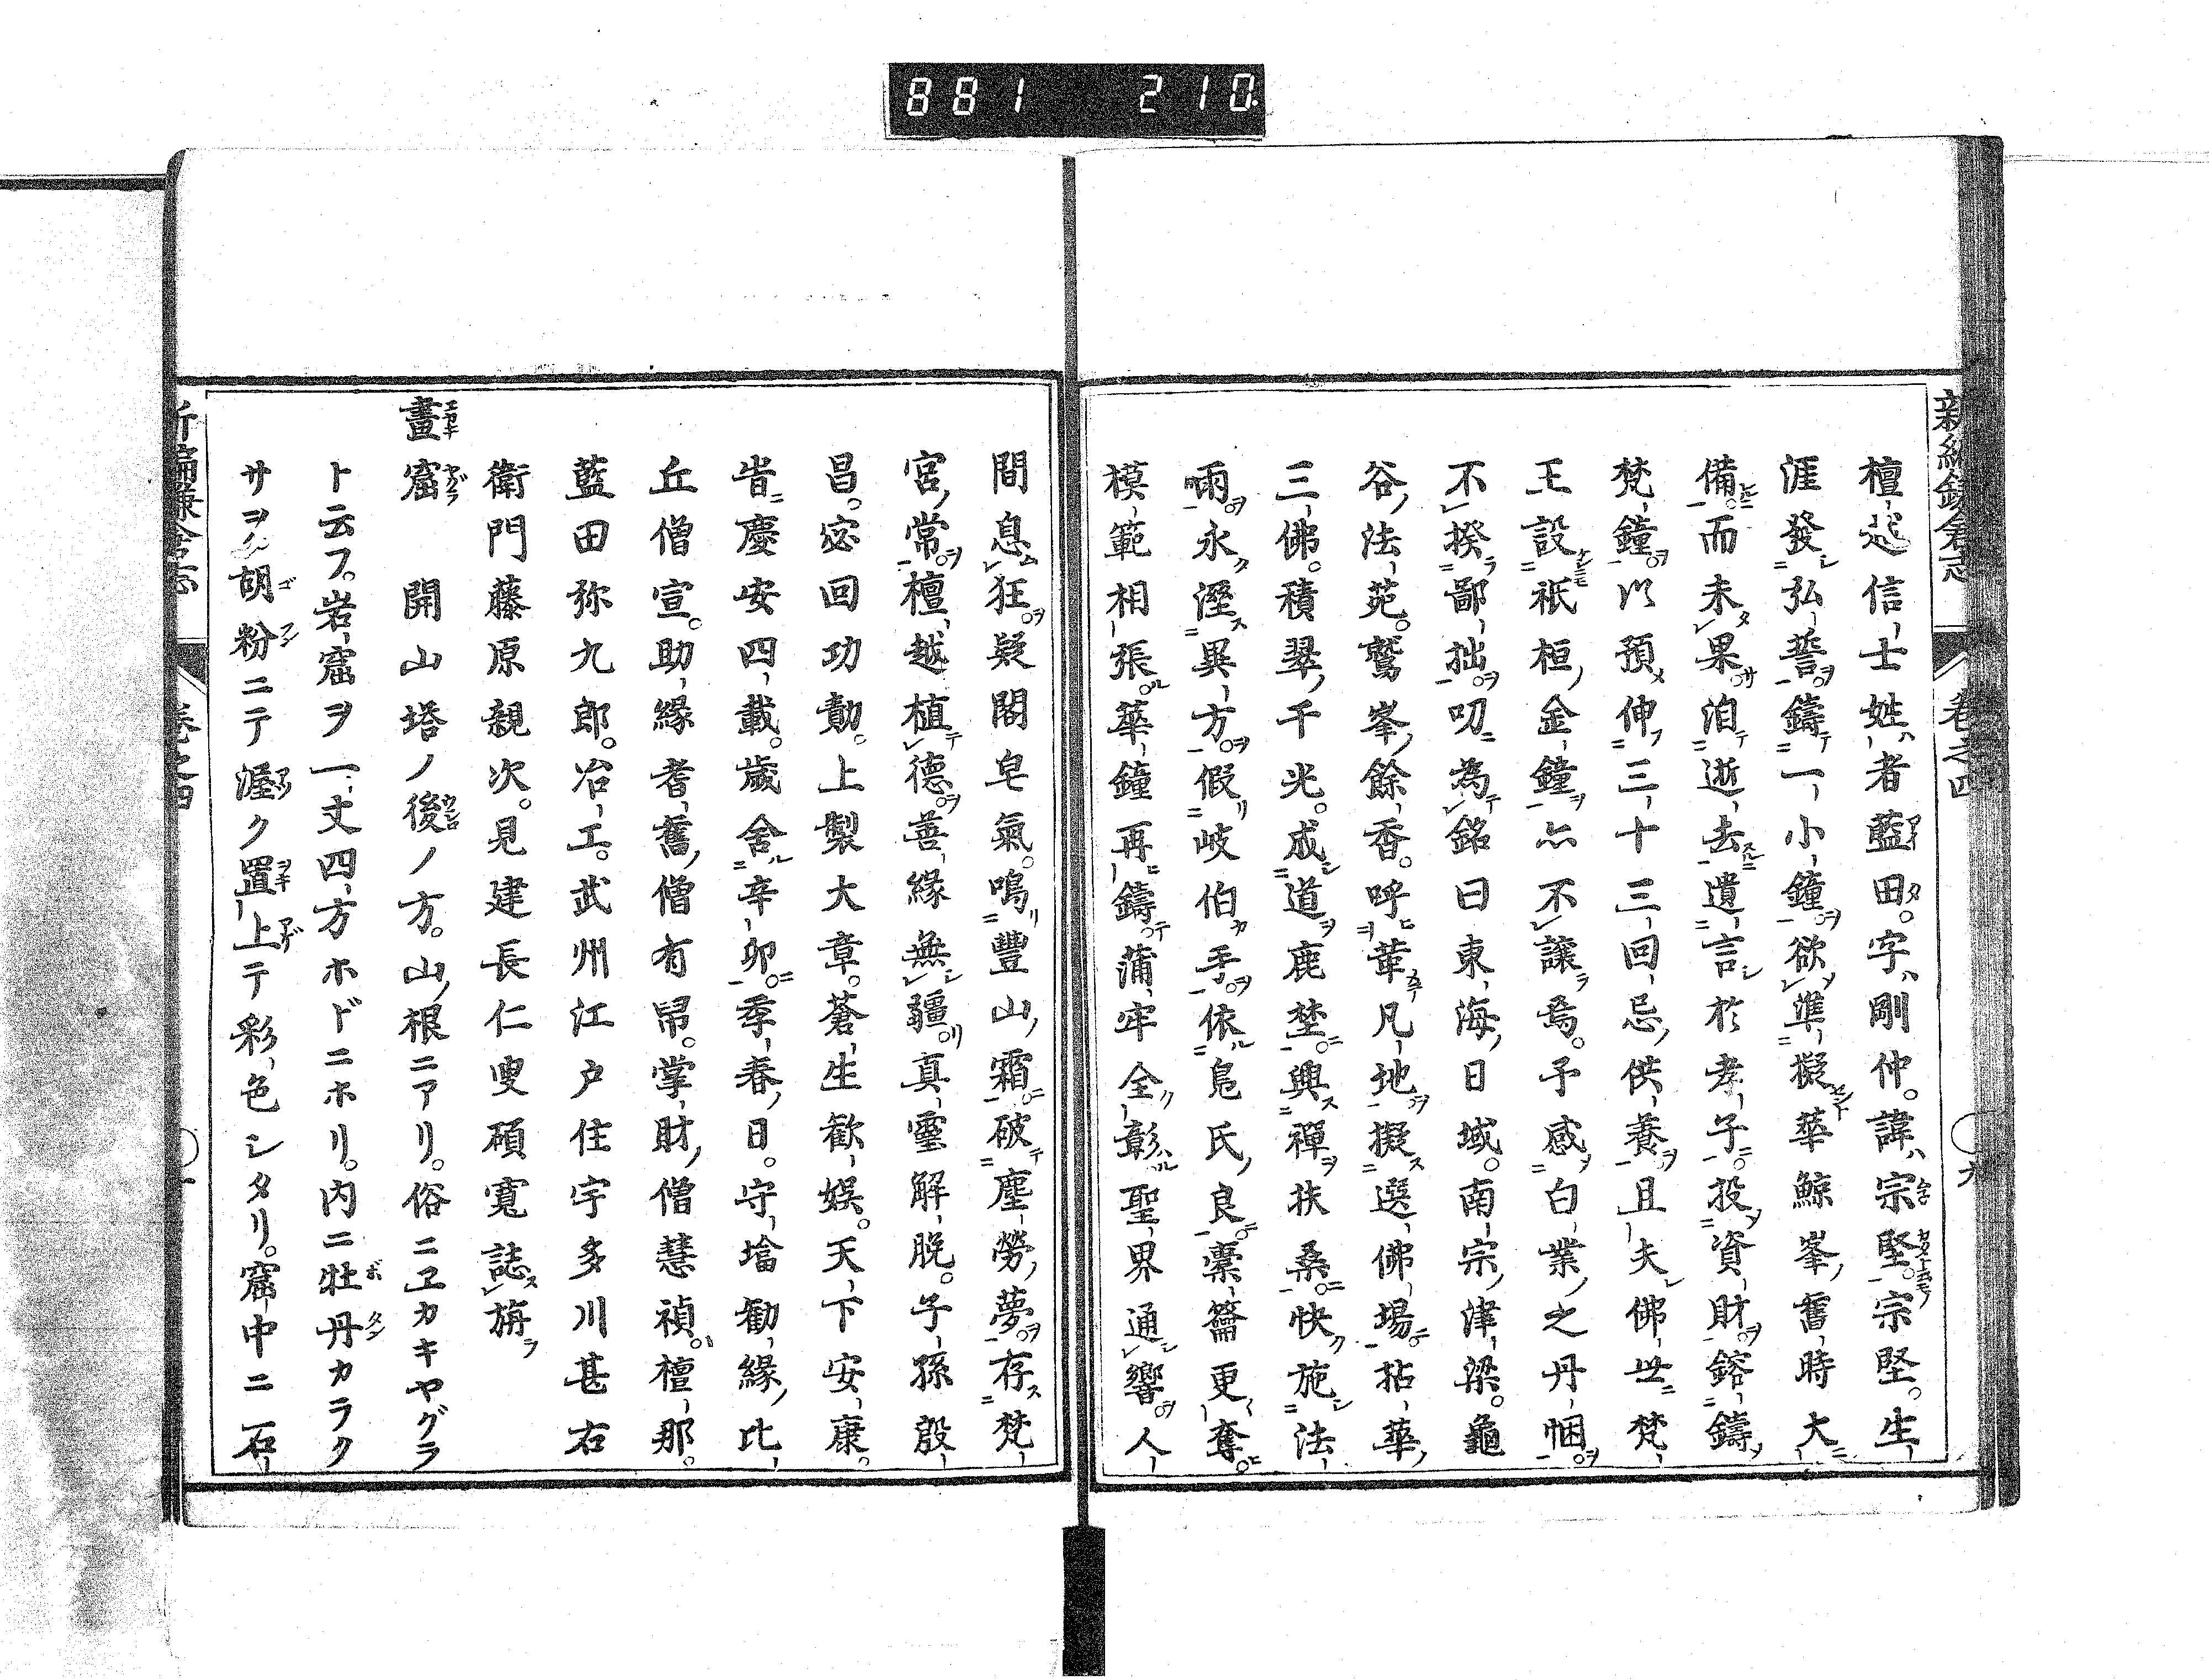 881 210
新編鎌倉志 卷之四
檀越信士姓者藍田。字剛仲。諱宗堅。宗堅。生
涯發弘誓鑄一小鐘欲準擬華鯨峯舊時大
備。而未果洎逝去遺言於孝子投資財鎔鑄
梵鐘以預伸三十三回忌供養且夫佛世梵
王設祇桓金鐘亦不讓焉。予感白業之丹悃
不揆鄙拙叨為銘曰東海日域。南宗津梁。龜
谷法苑。鷲峯餘香。呼葷凡地擬選佛場拈華
三佛。積翠千光。成道鹿埜。興禪扶桑。快施法
雨永溼異方假岐伯手依鳧氏良。橐籥更奪。
模範相張華鐘再鑄蒲牢全彰聖界通響人
間息狂疑閣皂氣。鳴豐山霜破塵勞夢存梵
宮常檀越植德善緣無疆真靈解脫。子孫殷
昌。宓回功勳。上製大章。蒼生歡娯。天下安康。
旹慶安四載。歲舍辛卯。季春日。守塔勸緣比
丘僧宣。助緣耆舊僧有帠。掌財僧慧禎。檀那。
藍田弥九郎。冶工。武州江戸住宇多川甚右
衛門藤原親次。見建長仁叟碩寬誌旃
畫窟 開山塔ノ後ノ方。山根ニアリ。俗ニヱカキヤグラ
ト云フ。岩窟ヲ一丈四方ホドニホリ。内ニ牡丹カラク
サヲ胡粉ニテ渥ク置上テ彩色シタリ。窟中ニ石